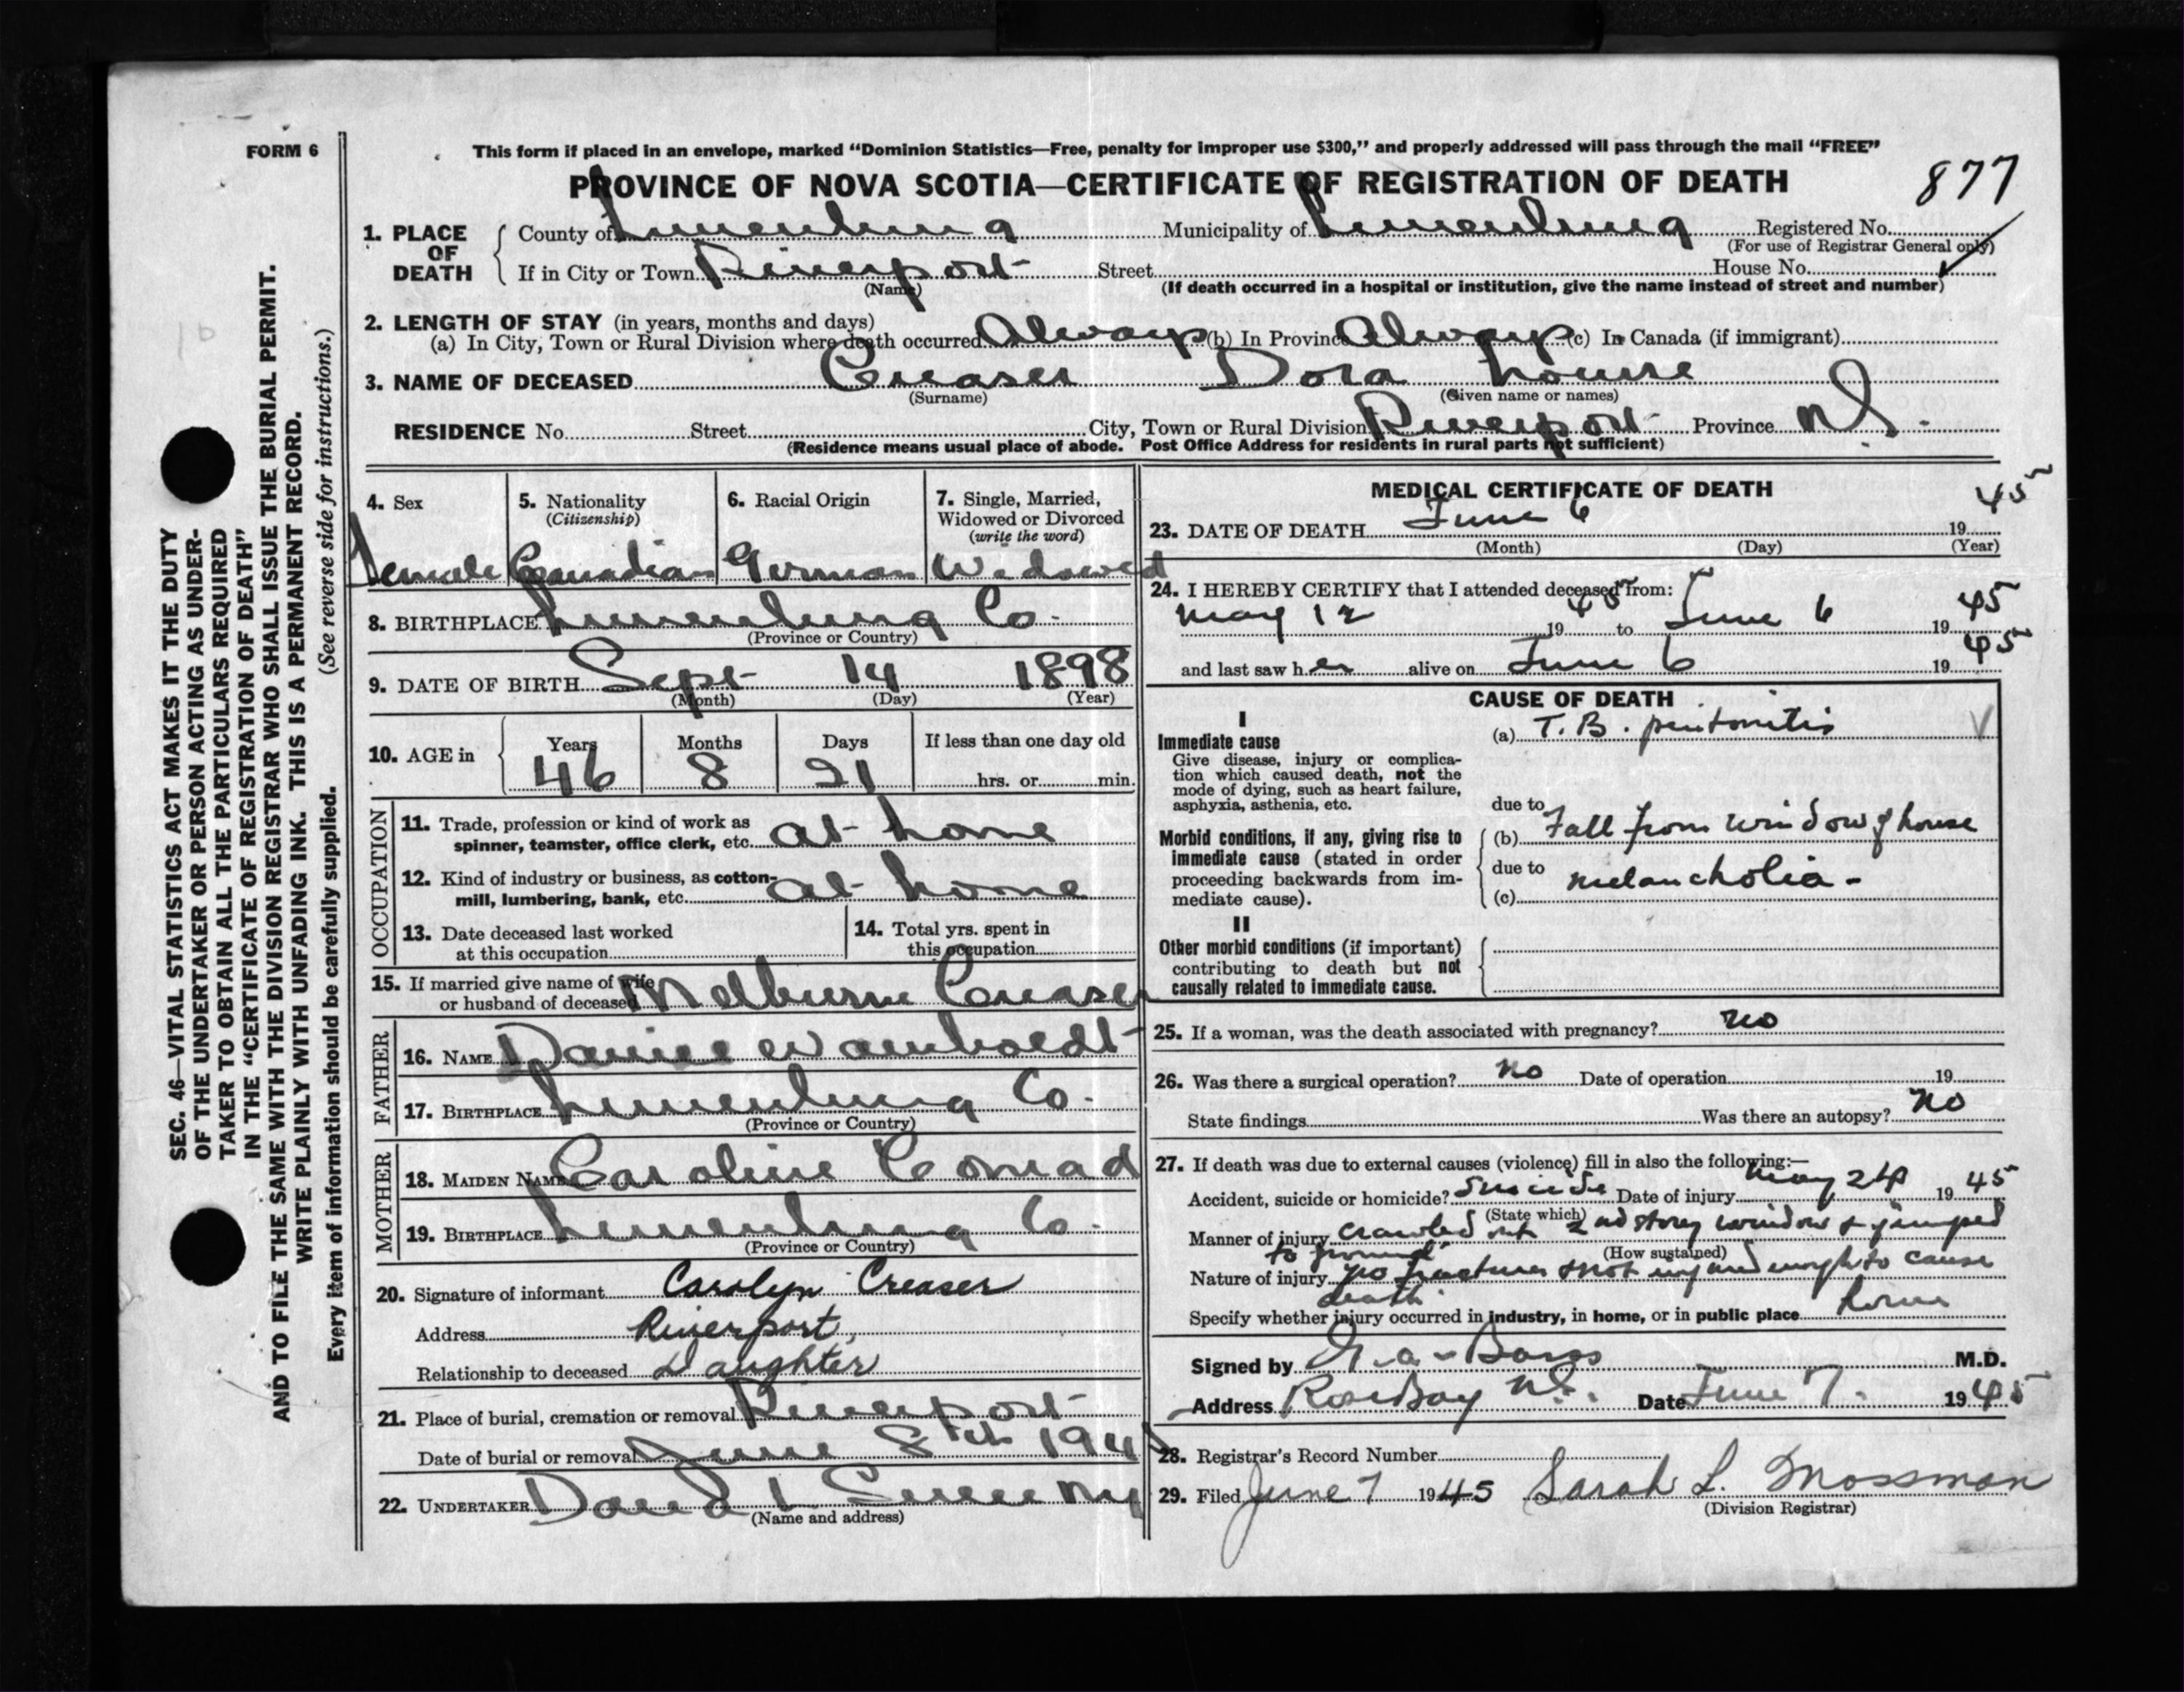 FORM 6
This form if placed in an envelope, marked “Dominion Statistics—Free, penalty for improper use $300,” and properly addressed will pass through the mail “FREE”
PROVINCE OF NOVA SCOTIA—CERTIFICATE OF REGISTRATION OF DEATH
877
1. PLACE OF DEATH
County of Lunenburg Municipality of Lunenburg Registered No.
(For use of Registrar General only)
If in City or Town Riverport Street House No.
(Name) (If death occurred in a hospital or institution, give the name instead of street and number)
2. LENGTH OF STAY (in years, months and days)
(a) In City, Town or Rural Division where death occurred Always (b) In Province Always (c) In Canada (if immigrant)
3. NAME OF DECEASED Creaser Dora Louise
(Surname) (Given name or names)
RESIDENCE No. Street City, Town or Rural Division Riverport Province N.S.
(Residence means usual place of abode. Post Office Address for residents in rural parts not sufficient)
4. Sex
Female
5. Nationality
(Citizenship)
Canadian
6. Racial Origin
German
7. Single, Married,
Widowed or Divorced
(write the word)
Widowed
8. BIRTHPLACE Lunenburg Co.
(Province or Country)
9. DATE OF BIRTH Sept 14 1898
(Month) (Day) (Year)
10. AGE in
Years Months Days If less than one day old
46 8 21 hrs. or min.
OCCUPATION
11. Trade, profession or kind of work as
spinner, teamster, office clerk, etc. at home
12. Kind of industry or business, as cotton-
mill, lumbering, bank, etc. at home
13. Date deceased last worked
at this occupation
14. Total yrs. spent in
this occupation
15. If married give name of wife
or husband of deceased Melburne Creaser
FATHER
16. NAME Daniel Wamboldt
17. BIRTHPLACE Lunenburg Co.
(Province or Country)
MOTHER
18. MAIDEN NAME Caroline Conrad
19. BIRTHPLACE Lunenburg Co.
(Province or Country)
20. Signature of informant Carolyn Creaser
Address Riverport,
Relationship to deceased Daughter
21. Place of burial, cremation or removal Riverport
Date of burial or removal June 8th 194
22. UNDERTAKER David L
(Name and address)
MEDICAL CERTIFICATE OF DEATH
23. DATE OF DEATH June 6 1945
(Month) (Day) (Year)
24. I HEREBY CERTIFY that I attended deceased from:
May 12 1945 to June 6 1945
and last saw her alive on June 6 1945
CAUSE OF DEATH
I
Immediate cause
Give disease, injury or complica-
tion which caused death, not the
mode of dying, such as heart failure,
asphyxia, asthenia, etc.
(a) T.B. peritonitis
due to
Morbid conditions, if any, giving rise to
immediate cause (stated in order
proceeding backwards from im-
mediate cause).
(b) Fall from window of house
due to
(c) melancholia -
II
Other morbid conditions (if important)
contributing to death but not
causally related to immediate cause.
25. If a woman, was the death associated with pregnancy? no
26. Was there a surgical operation? no Date of operation 19
State findings Was there an autopsy? no
27. If death was due to external causes (violence) fill in also the following:—
Accident, suicide or homicide? Suicide Date of injury May 24 1945
(State which)
Manner of injury crawled out 2nd story window & jumped
to ground (How sustained)
Nature of injury no fractures & not injured enough to cause
death.
Specify whether injury occurred in industry, in home, or in public place home
Signed by Barss M.D.
Address Rose Bay N.S. Date June 7. 1945
28. Registrar's Record Number
29. Filed June 7 1945 Sarah L. Mossman
(Division Registrar)
SEC. 46—VITAL STATISTICS ACT MAKES IT THE DUTY
OF THE UNDERTAKER OR PERSON ACTING AS UNDER-
TAKER TO OBTAIN ALL THE PARTICULARS REQUIRED
IN THE “CERTIFICATE OF REGISTRATION OF DEATH”
AND TO FILE THE SAME WITH THE DIVISION REGISTRAR WHO SHALL ISSUE THE BURIAL PERMIT.
WRITE PLAINLY WITH UNFADING INK. THIS IS A PERMANENT RECORD.
Every item of information should be carefully supplied. (See reverse side for instructions.)